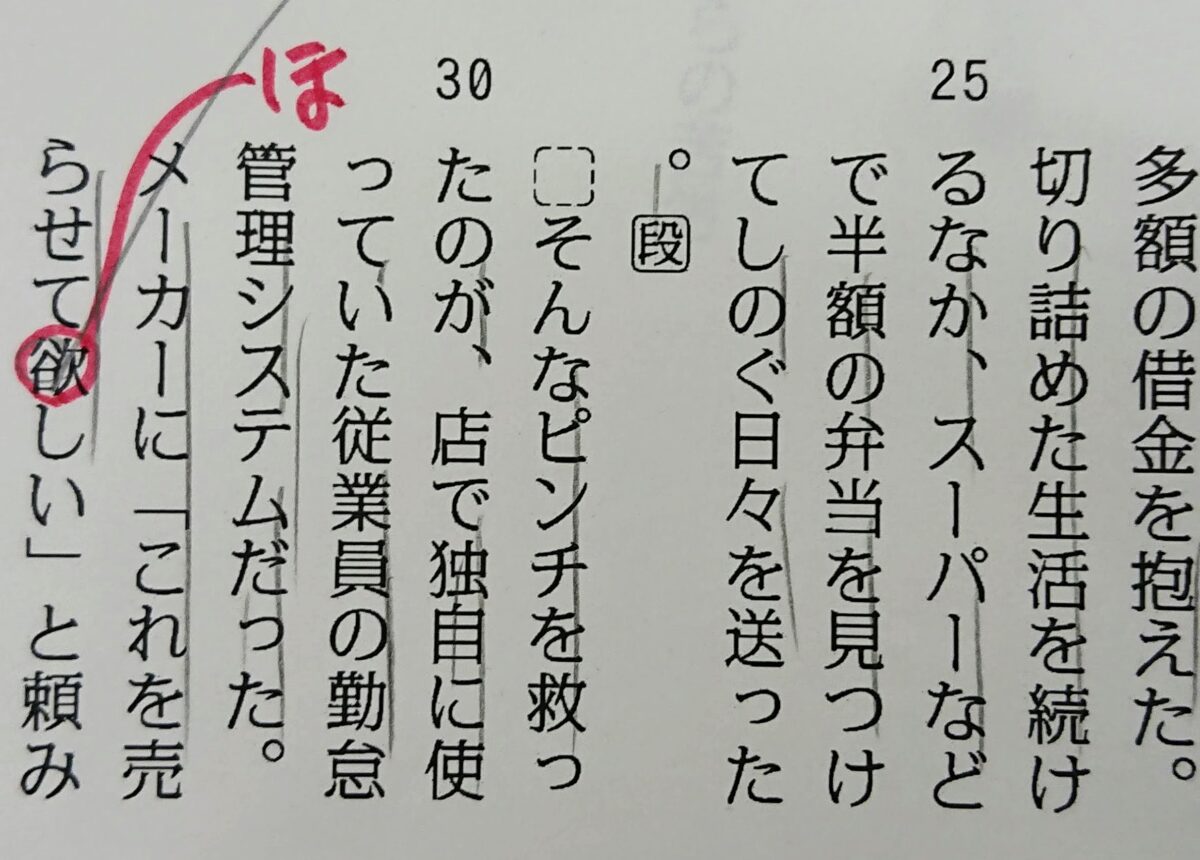 多額の借金を抱えた。
切り詰めた生活を続け
25
るなか、スーパーなど
で半額の弁当を見つけ
てしのぐ日々を送った
。段
そんなピンチを救っ
30
たのが、店で独自に使
っていた従業員の勤怠
管理システムだった。
ほ
メーカーに「これを売
らせて欲しい」と頼み